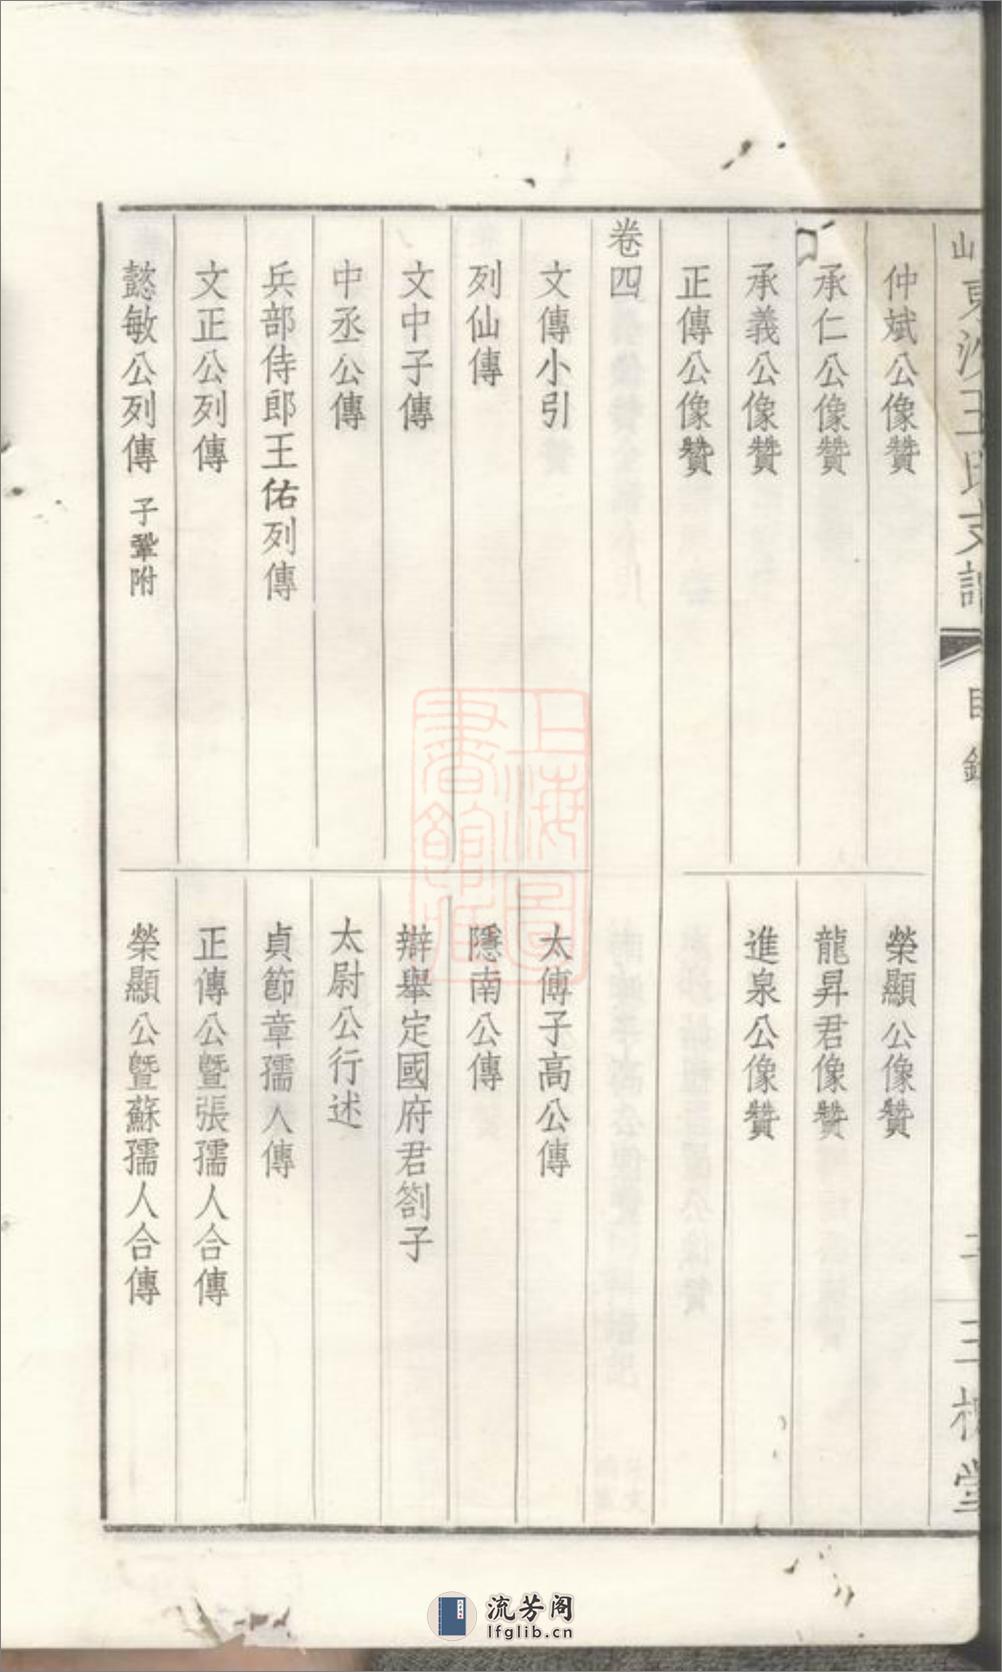 山東沙王氏支譜
目錄
三槐堂
仲斌公像贊
榮顯公像贊
承仁公像贊
龍昇君像贊
承義公像贊
進泉公像贊
正傳公像贊
卷四
文傳小引
太傅子高公傳
列仙傳
隱南公傳
文中子傳
辯舉定國府君劄子
中丞公傳
太尉公行述
兵部侍郎王佑列傳
貞節章孺人傳
文正公列傳
正傳公暨張孺人合傳
懿敏公列傳 子鞏附
榮顯公暨蘇孺人合傳
上海圖書館藏
流芳阁
lfglib.cn